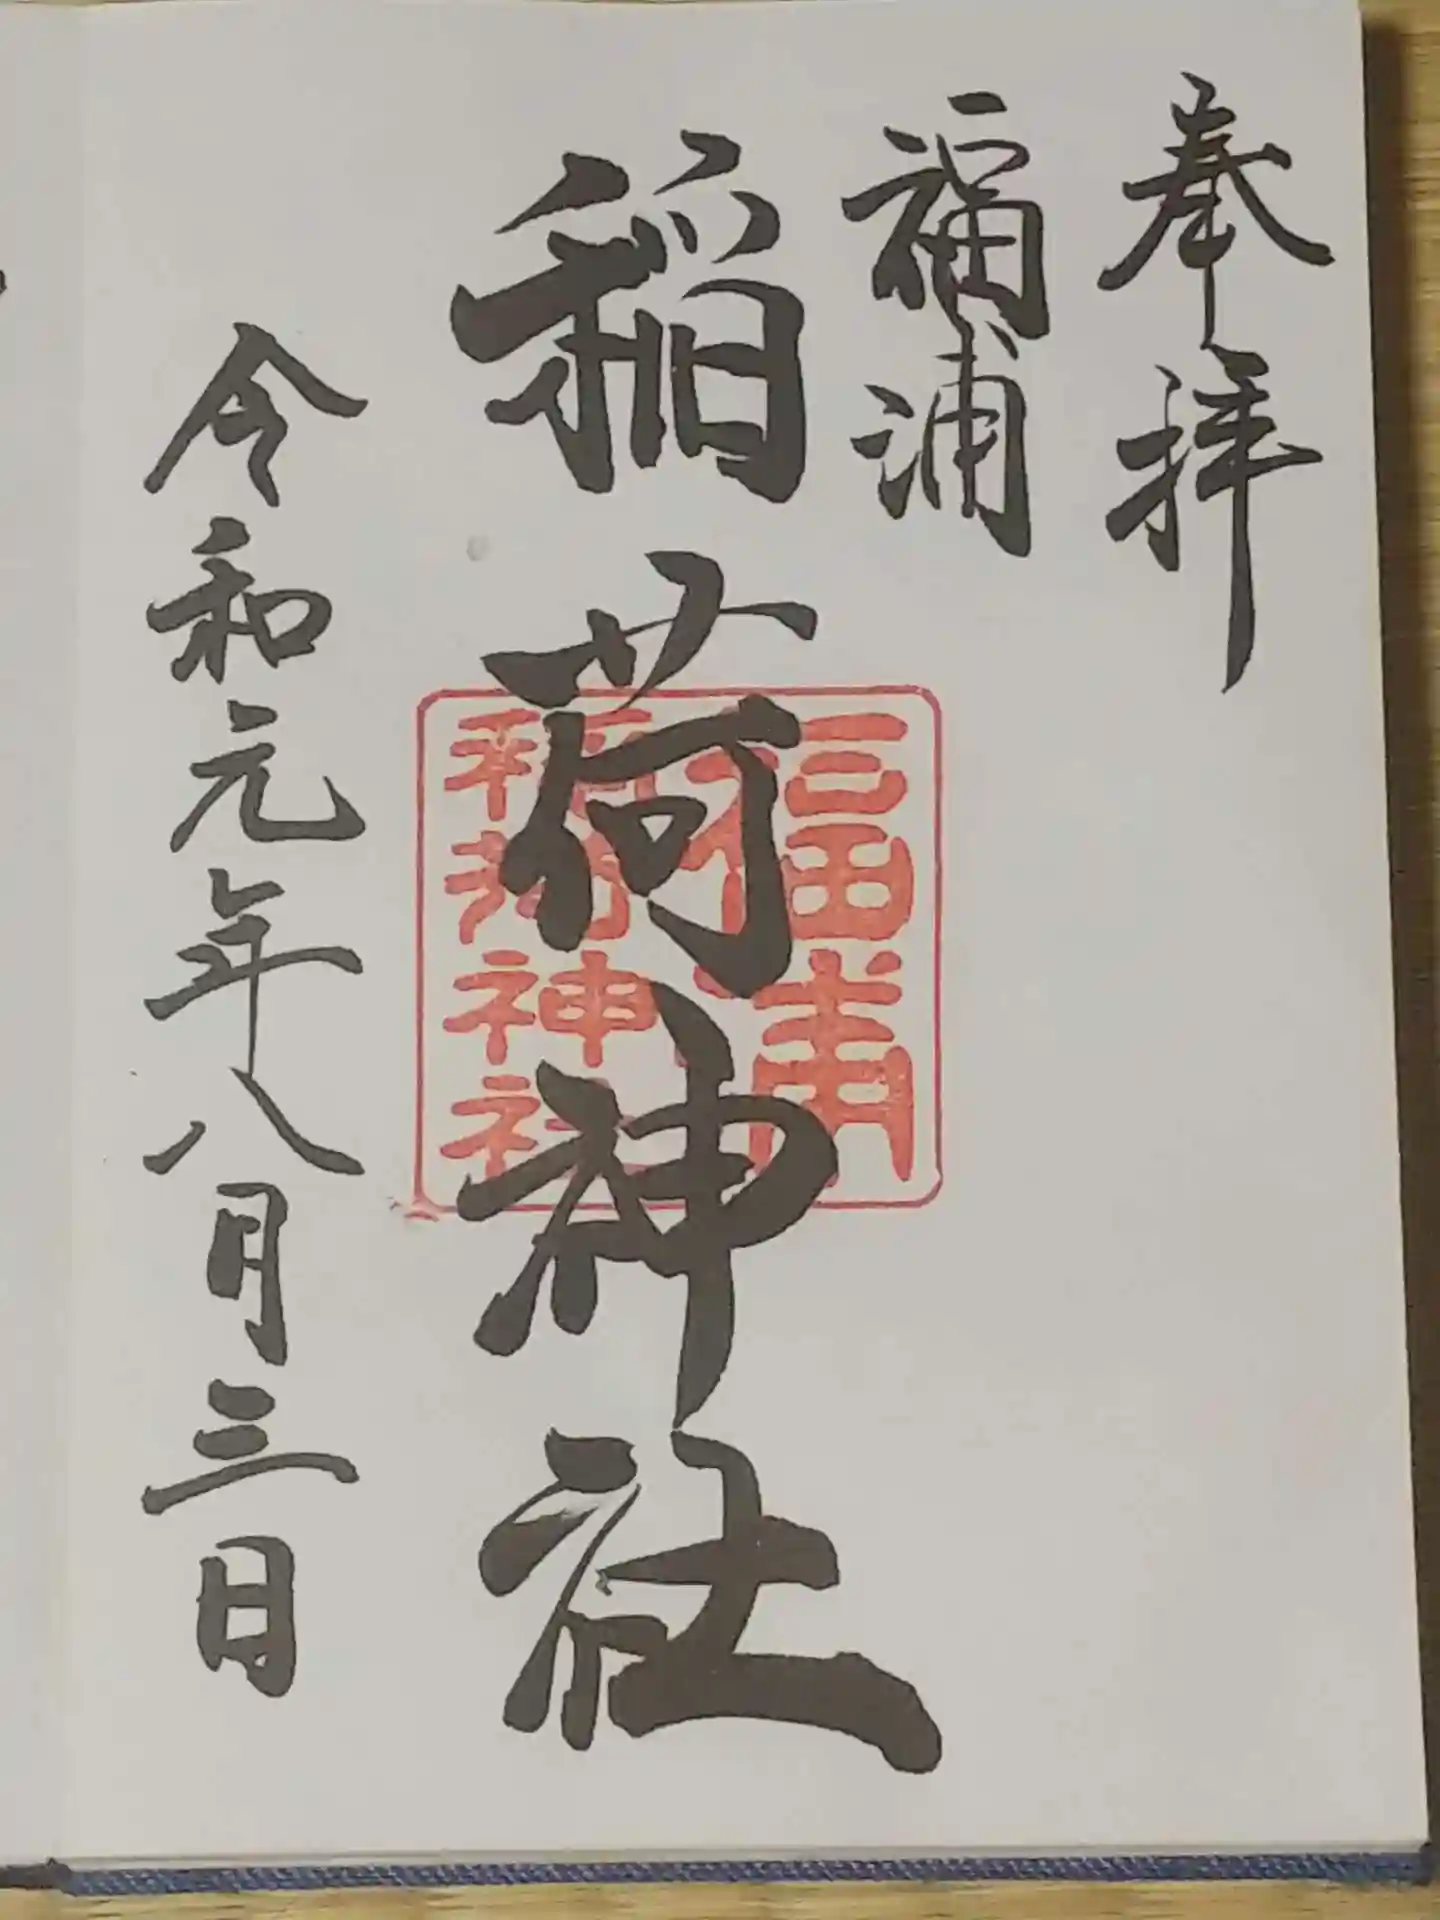 奉拝
福浦
稲荷神社
令和元年八月三日
福浦
稲荷神社